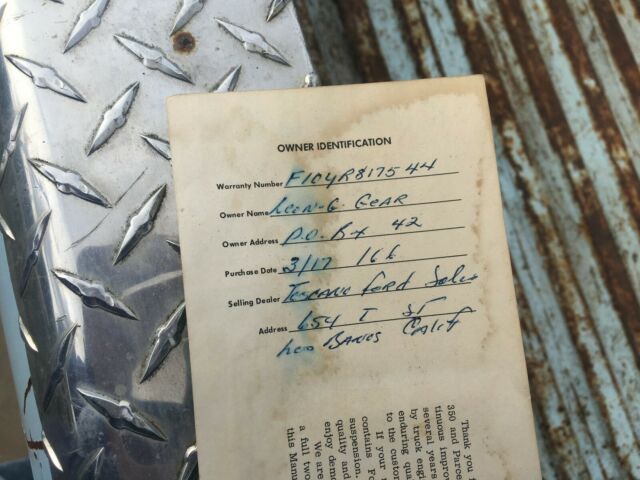 OWNER IDENTIFICATION
Warranty Number F10YR817544
Owner Name Leen G. Gear
Owner Address P.O. Bx 42
Purchase Date 3/17 166
Selling Dealer Ford Sales
Address 654 I ST
Los Banos Calif
Thank you f
350 and Parce
tinuous improv
several years
by truck engi
enduring qua
to the custom
If your
contains Fo
suspension.
quality and
We are
enjoy demo
a full two
this Manu